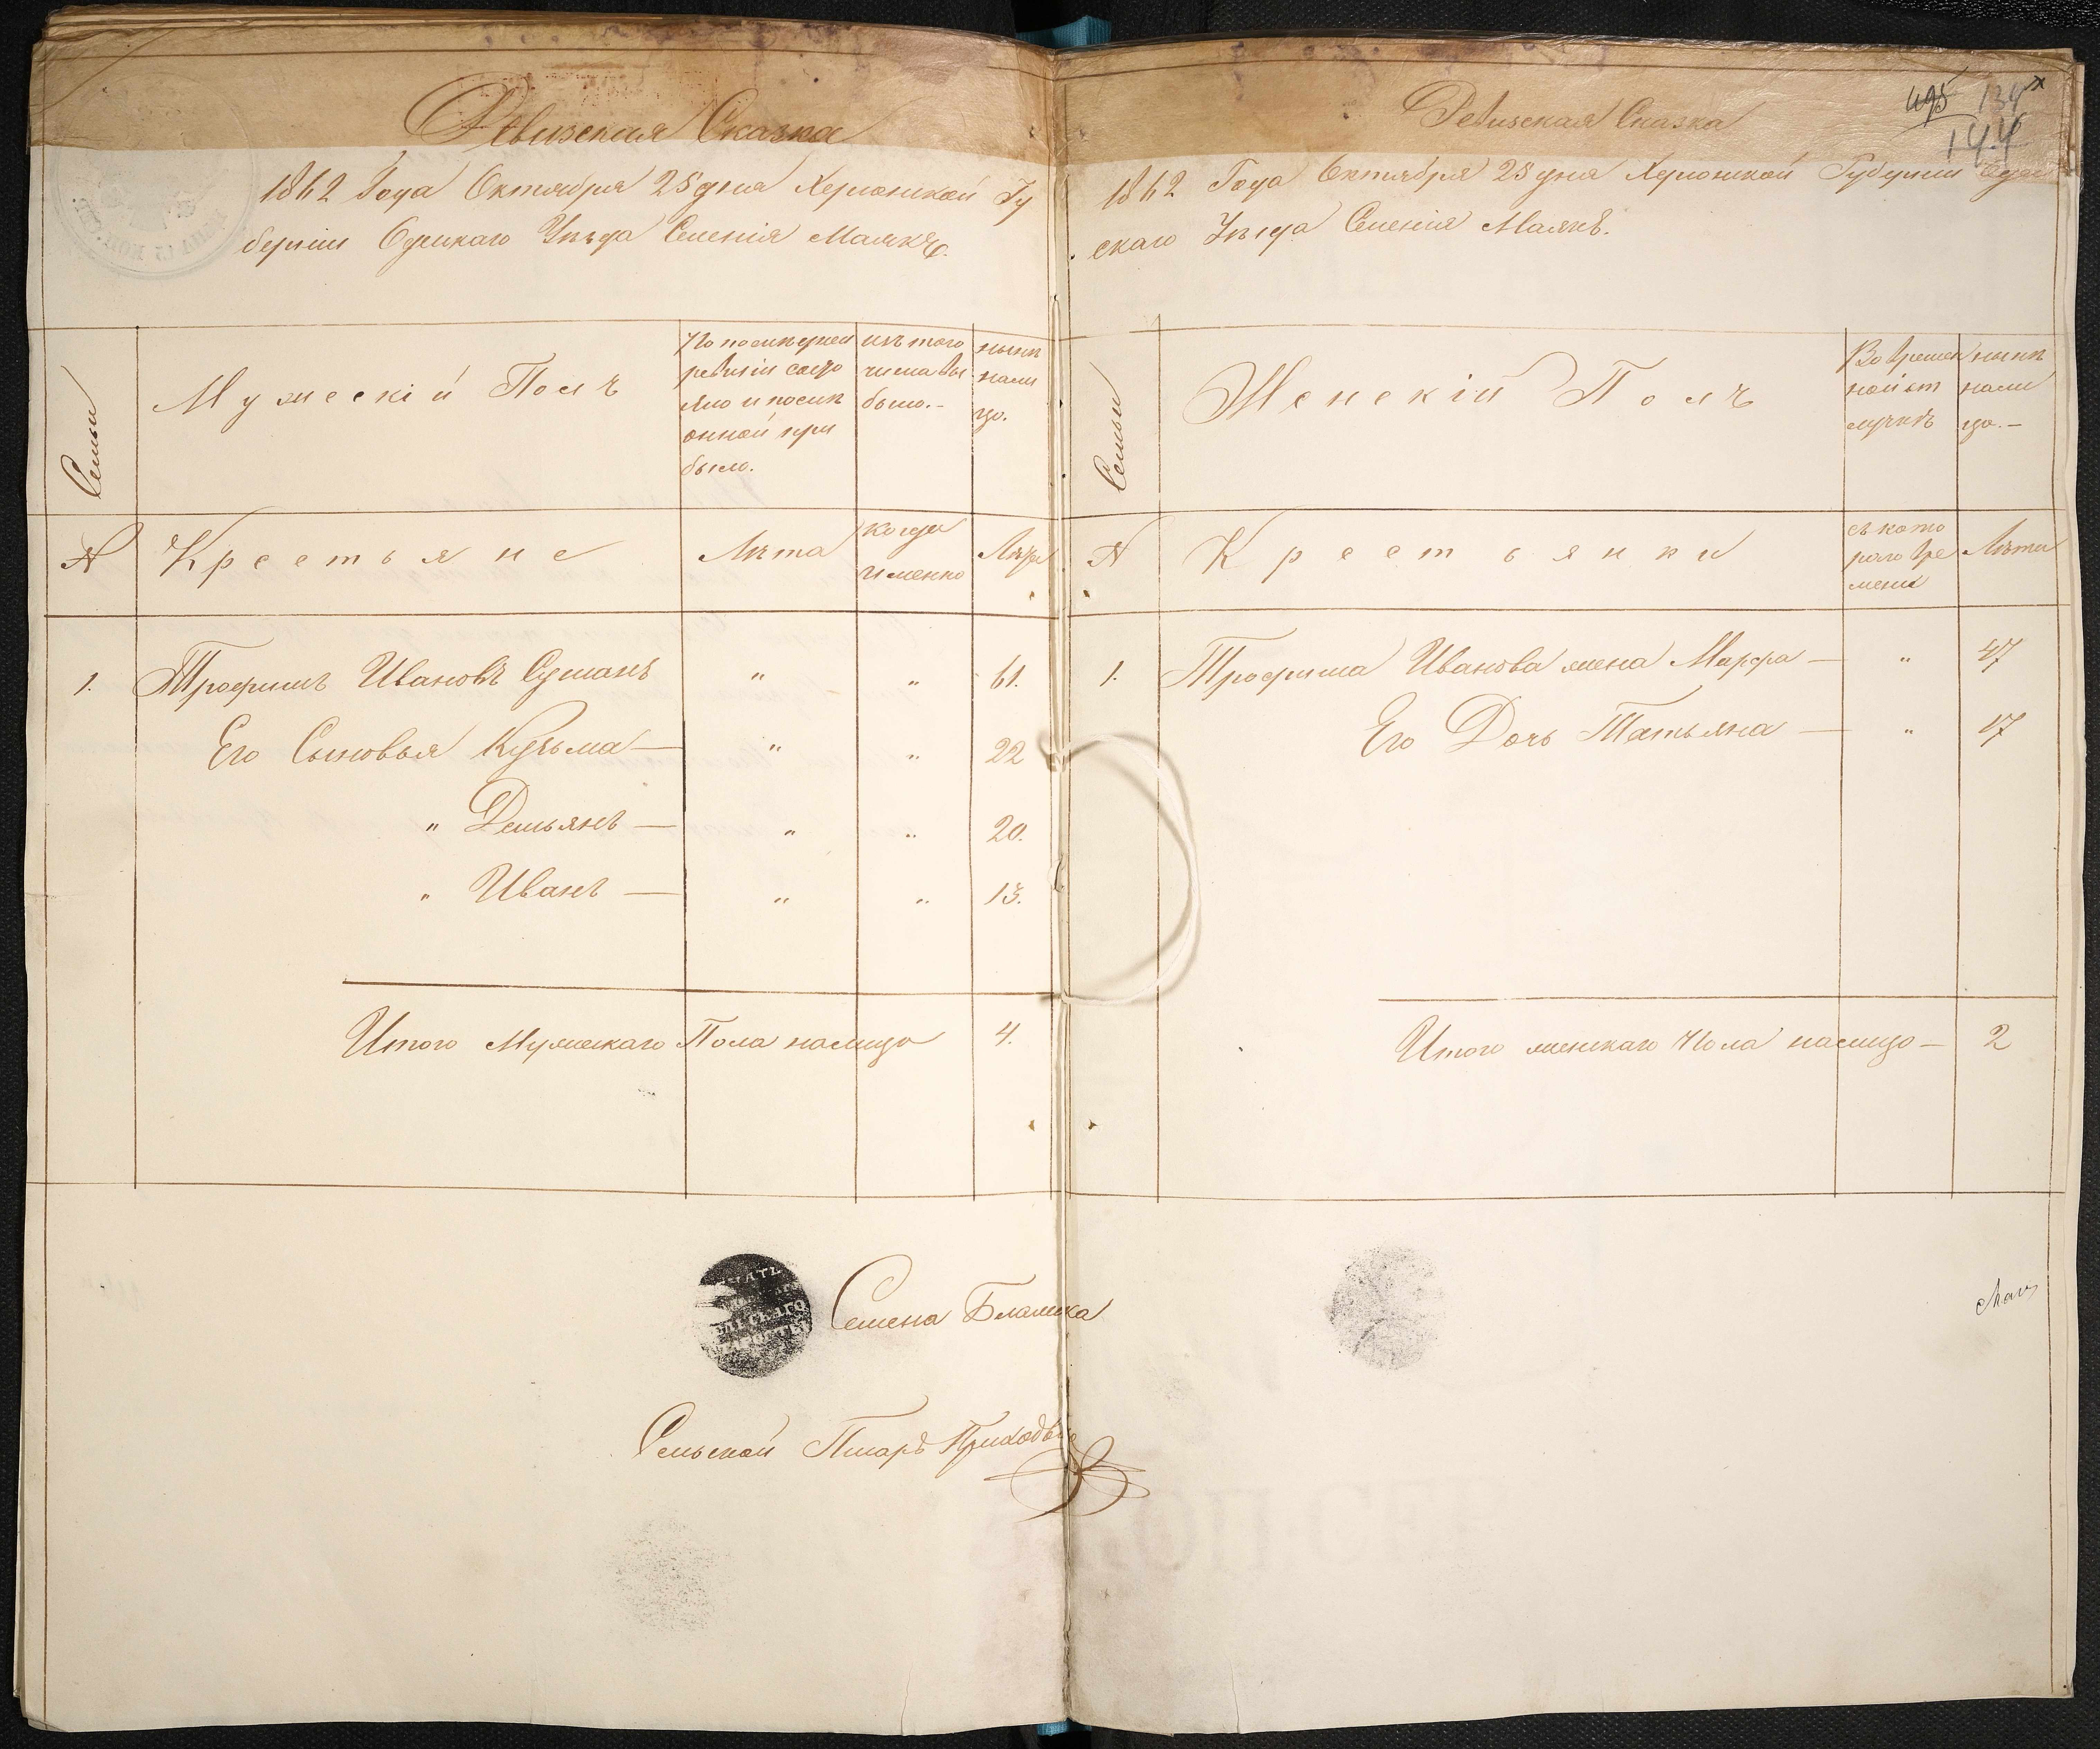 Ревизская Сказка
1862 Года Октября 25 дня Херсонской Гу
берніи Одескаго Уѣзда Селенія Маякъ.
Семьи
Мужескій Полъ
По послѣдней
ревизіи состо
яло и послѣ
онной при
было.
изъ того
числа вы
было.-
нынѣ
нали
цо.
№
Крестьяне
Лѣта
Когда
именно
Лѣта
1. Трофимъ Ивановъ Сушанъ " " 61.
Его Сыновья Кузьма — " " 22
" Демьянъ — " " 20.
" Иванъ — " " 13.
Итого Мужескаго Пола налицо 4.
Семена Блажка
Сельской Писарь Приходько
495 134
144
Ревизская Сказка
1862 Года Октября 25 дня Херсонской Губерніи Одес
скаго Уѣзда Селенія Маякъ.
Семьи
Женскій Полъ
Во времен
ной от
лучкѣ
нынѣ
нали
цо.-
№
Крестьянки
съ кото
раго вре
мени
Лѣта
1. Трофима Иванова жена Марфа — " 47
Его Дочь Татьяна — " 17
Итого женскаго Пола налицо — 2